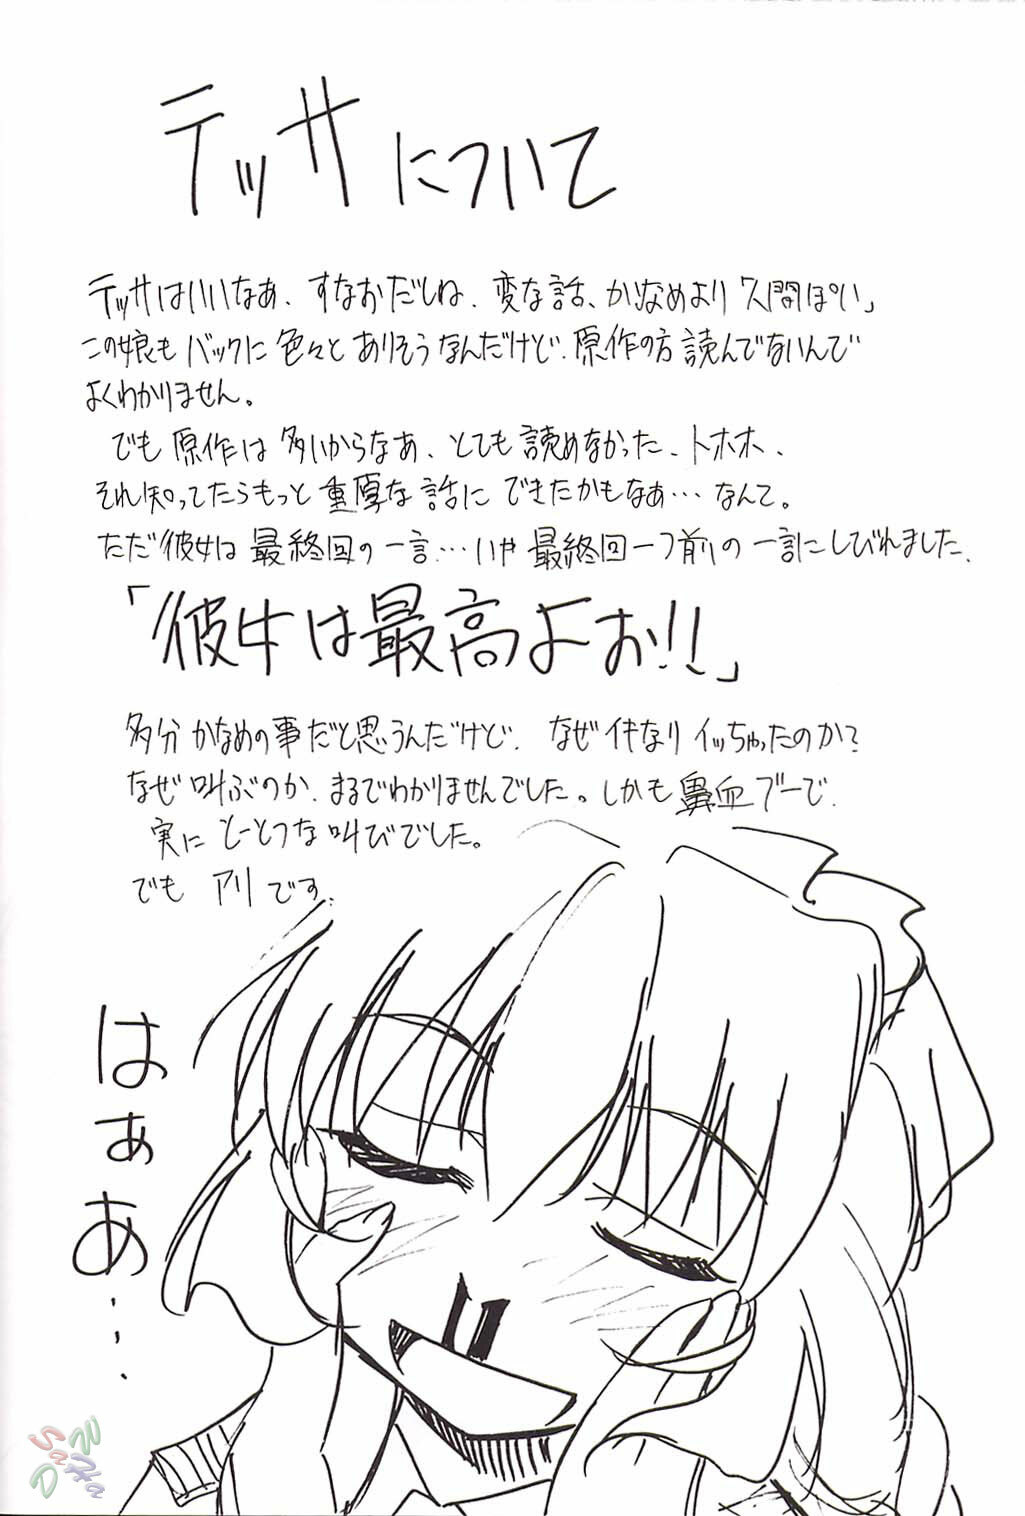 テッサについて
テッサはいいなあ、すなおだしね、変な話、かなめより「人間ぽい」
この娘もバックに色々とありそうなんだけど、原作の方読んでないんで
よくわかりません。
でも原作は多いからなあ、とても読めなかった、トホホ、
それ知ってたらもっと重厚な話にできたかもなあ…なんて。
ただ彼女は最終回の一言…いや最終回一つ前の一言にしびれました、
「彼女は最高よお!!」
多分かなめの事だと思うんだけど、なぜイキなりイッちゃったのか?
なぜ叫ぶのか、まるでわかりませんでした。しかも鼻血ブーで、
実にとーとつな叫びでした。
でもアリです、
はぁあ…